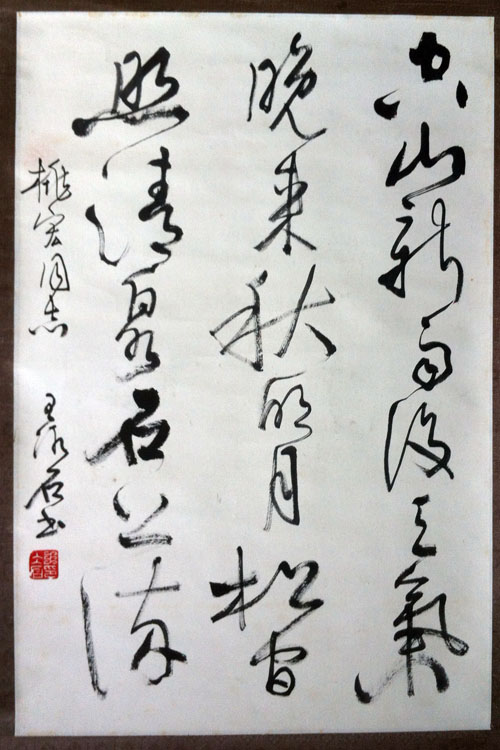 空山新雨後天氣
晚来秋明月松间
照清泉石上流
桃宏同志
王石书